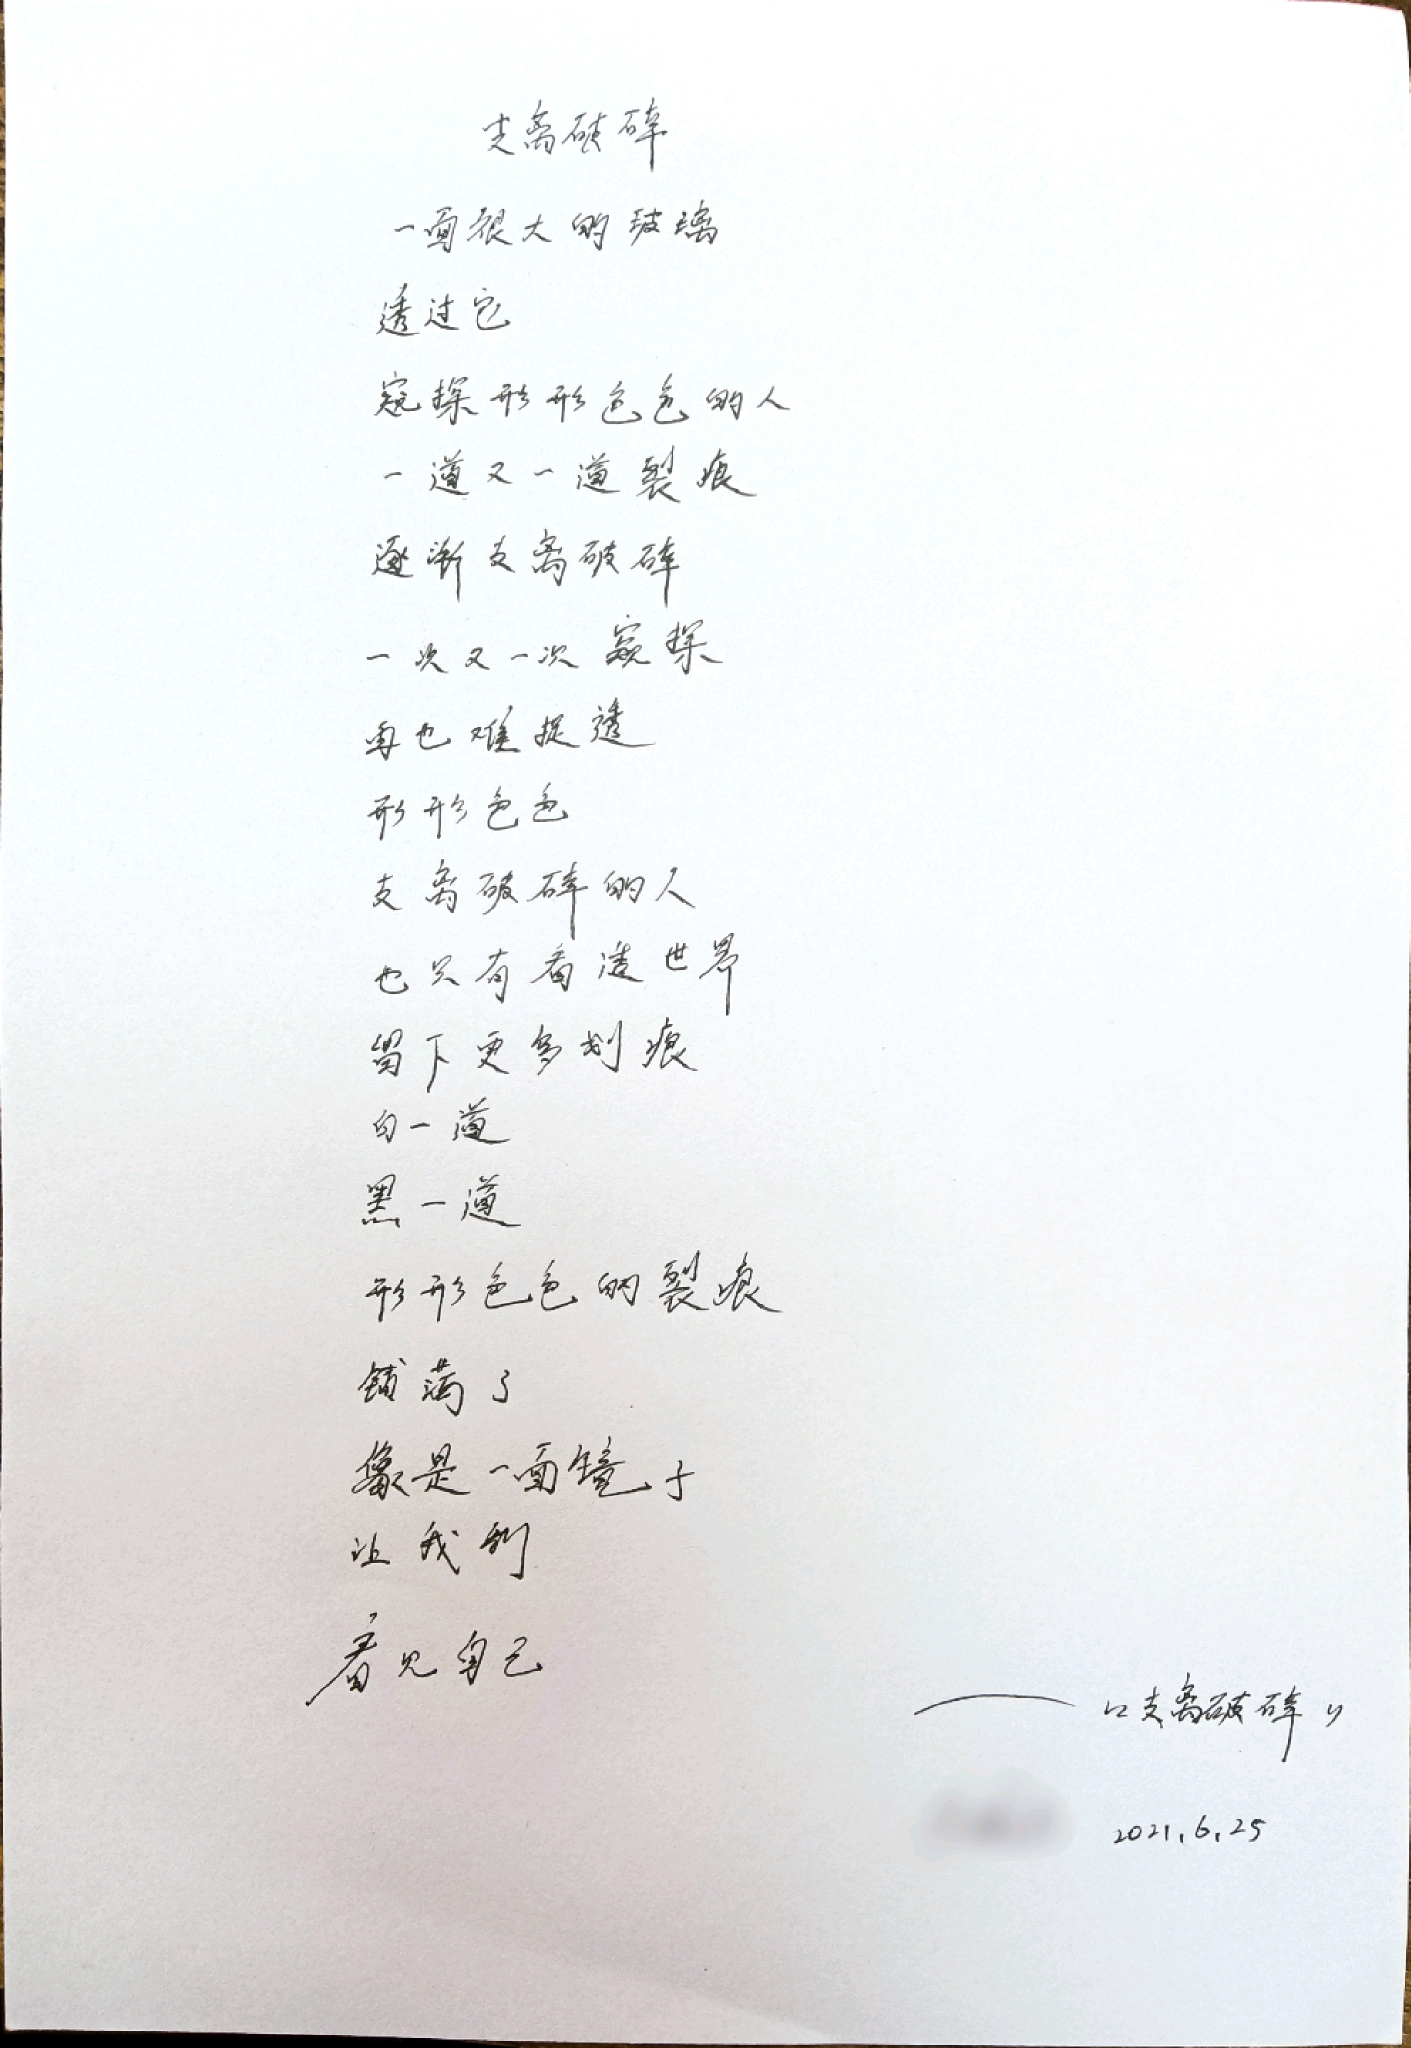 支离破碎
一面很大的玻璃
透过它
窥探形形色色的人
一道又一道裂痕
逐渐支离破碎
一次又一次窥探
再也难捉透
形形色色
支离破碎的人
也只有看透世界
留下更多划痕
白一道
黑一道
形形色色的裂痕
铺满了
像是一面镜子
让我们
看见自己
——《支离破碎》
2021.6.25